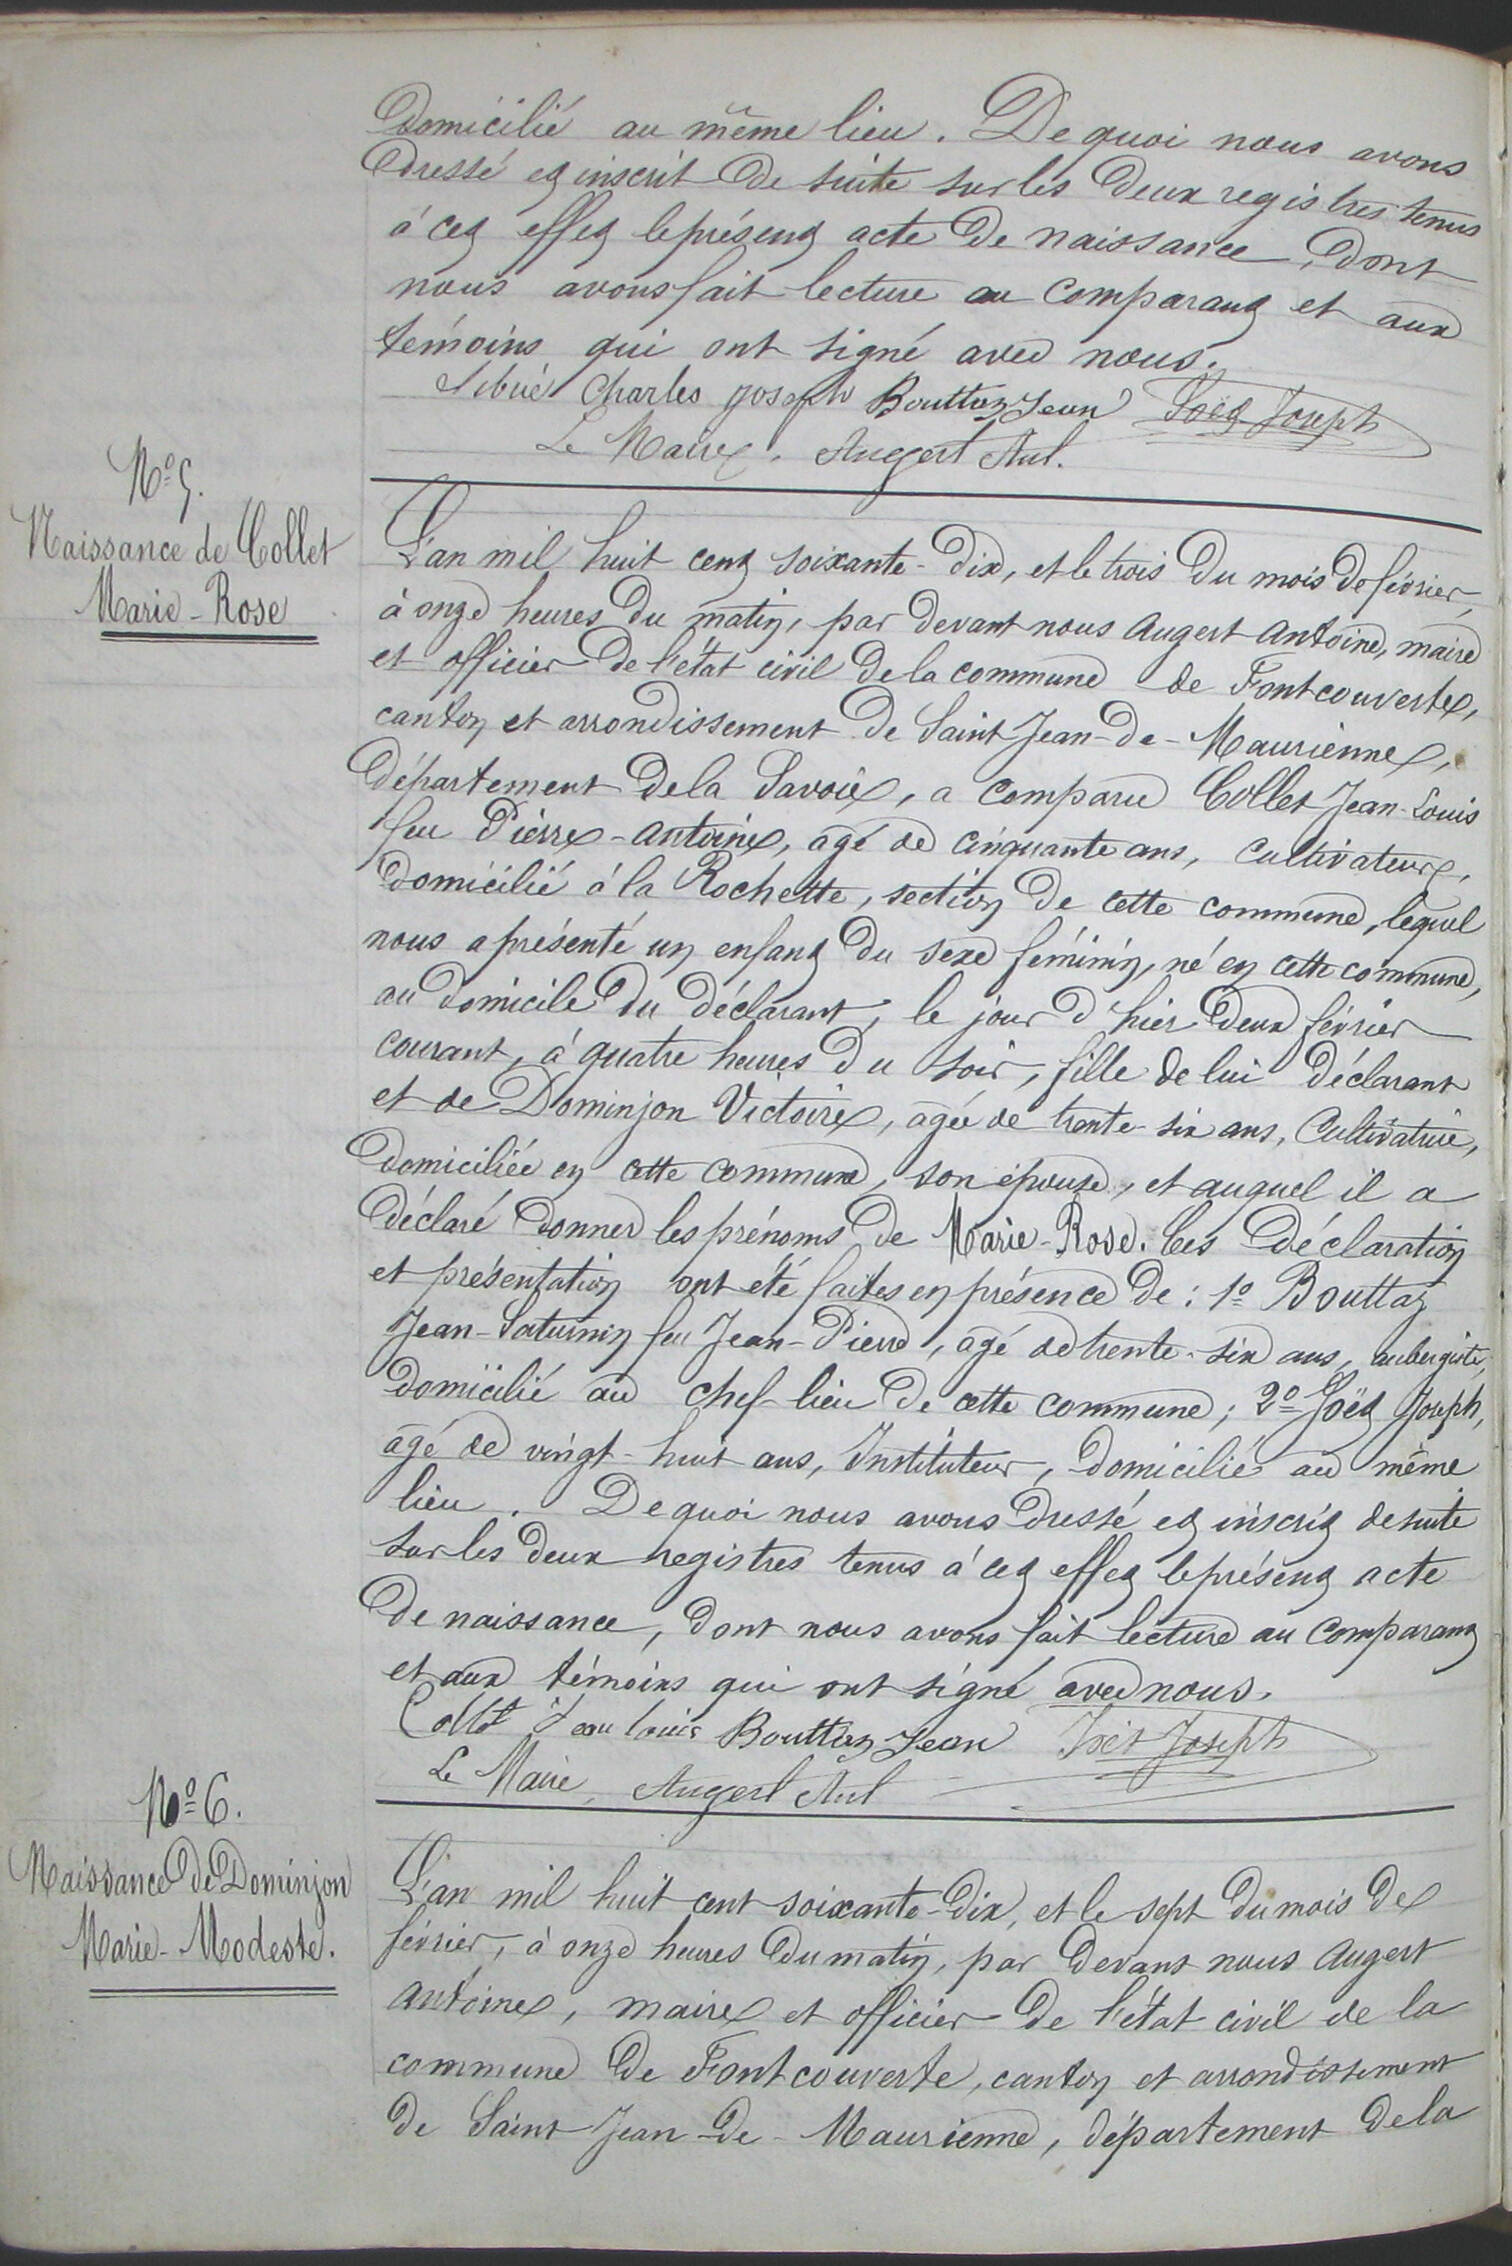 domicilié au même lieu. De quoi nous avons
dressé et inscrit de suite sur les deux registres tenus
à cet effet le présent acte de naissance, dont
nous avons fait lecture au comparant et aux
témoins qui ont signé avec nous.
Charles joseph Bouttaz Jean Joët Joseph
Le Maire, Augert Ant.
N.º 5.
Naissance de Collet
Marie-Rose
L'an mil huit cent soixante-dix, et le trois du mois de février,
à onze heures du matin, par devant nous Augert Antoine, maire
et officier de l'état civil de la commune de Fontcouverte,
canton et arrondissement de Saint Jean-de-Maurienne,
département de la Savoie, a comparu Collet Jean-Louis
feu Pierre-Antoine, agé de cinquante ans, cultivateur,
domicilié à la Rochette, section de cette commune, lequel
nous a présenté un enfant du sexe féminin, né en cette commune,
au domicile du déclarant, le jour d'hier deux février
courant, à quatre heures du soir, fille de lui déclarant
et de Dominjon Victoire, agée de trente-six ans, cultivatrice,
domiciliée en cette commune, son épouse, et auquel il a
déclaré donner les prénoms de Marie-Rose. Ces déclaration
et présentation ont été faites en présence de : 1º Bouttaz
Jean-Saturnin feu Jean-Pierre, agé de trente-six ans, aubergiste,
domicilié au chef-lieu de cette commune ; 2º Joët Joseph,
agé de vingt-huit ans, Instituteur, domicilié au même
lieu. De quoi nous avons dressé et inscrit de suite
sur les deux registres tenus à cet effet le présent acte
de naissance, dont nous avons fait lecture au comparant
et aux témoins qui ont signé avec nous.
Collet Jean louis Bouttaz Jean Joët Joseph
Le Maire, Augert Ant
Nº 6.
Naissance de Dominjon
Marie-Modeste.
L'an mil huit cent soixante-dix, et le sept du mois de
février, à onze heures du matin, par devant nous Augert
Antoine, maire et officier de l'état civil de la
commune de Fontcouverte, canton et arrondissement
de Saint Jean-de-Maurienne, département de la